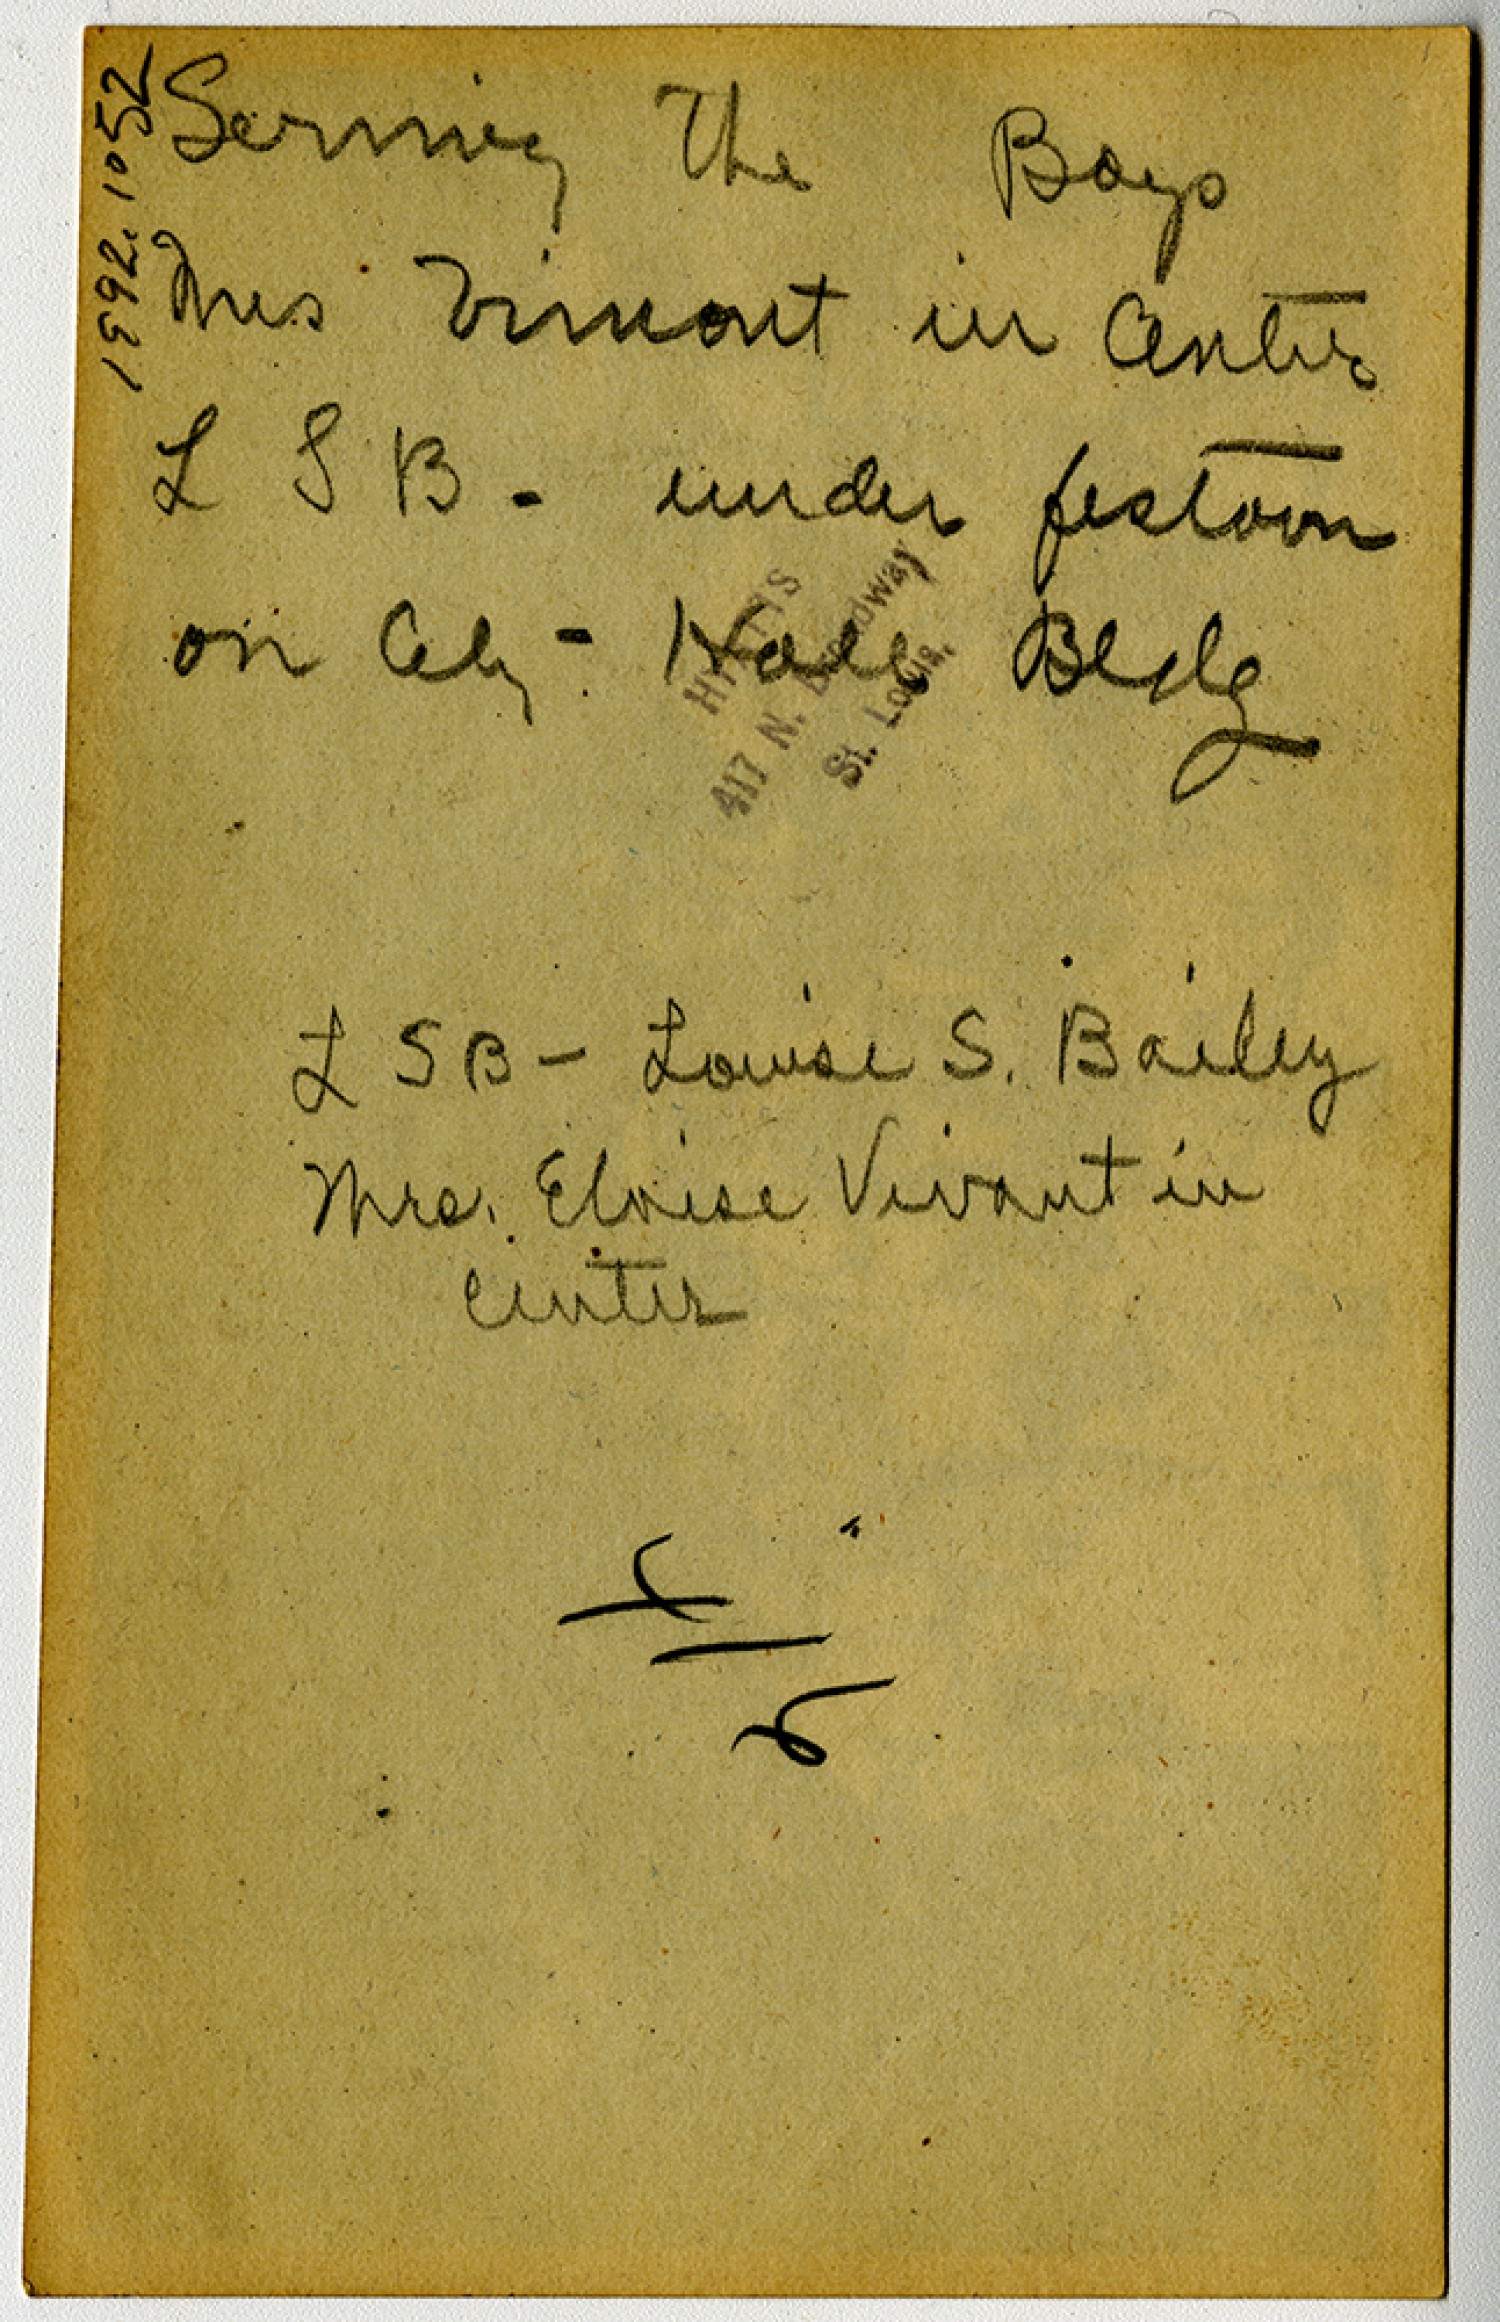 1992.1052
Serving The Boys
Mrs Vimont in Center
L S B - under festoon
on City - Hall Bldg
HYATT'S
417 N. Broadway
St. Louis.
L S B - Louise S. Bailey
Mrs. Eloise Vivant in
center